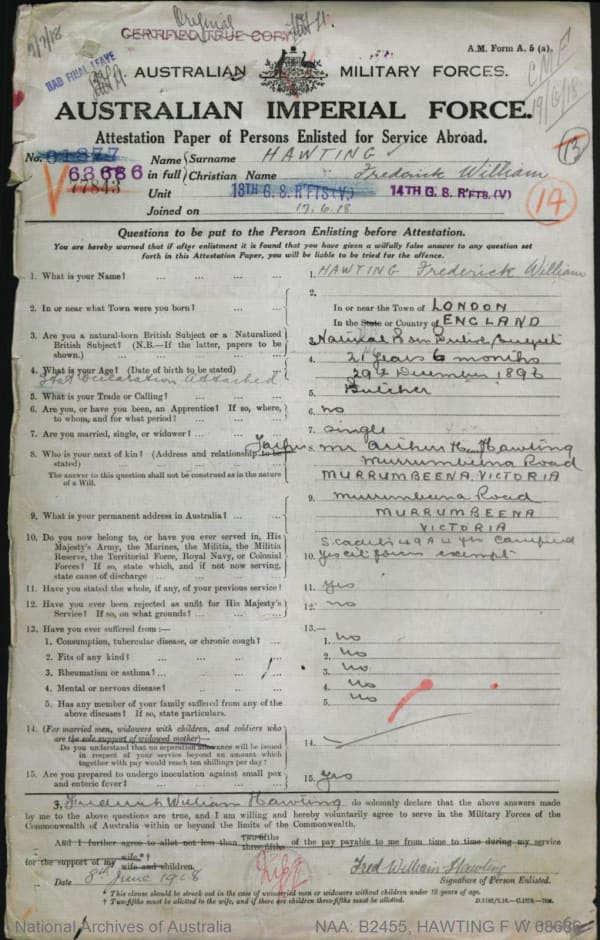 Original
CERTIFIED TRUE COPY
5/7/18
HAD FINAL LEAVE
A.M. Form A. 5 (a).
C.M.F
19/6/18
AUSTRALIAN MILITARY FORCES.
AUSTRALIAN IMPERIAL FORCE.
Attestation Paper of Persons Enlisted for Service Abroad.
No. 61877
68686
77843
V
Name in full { Surname HAWTING
Christian Name Frederick William
13
14
Unit 13TH G. S. R'FTS (V) 14TH G. S. R'FTS. (V)
Joined on 17.6.18
Questions to be put to the Person Enlisting before Attestation.
You are hereby warned that if after enlistment it is found that you have given a wilfully false answer to any question set
forth in this Attestation Paper, you will be liable to be tried for the offence.
1. What is your Name? ... ... ... 1. HAWTING Frederick William
2. In or near what Town were you born? ... ... 2. In or near the Town of LONDON
In the State or Country of ENGLAND
3. Are you a natural-born British Subject or a Naturalized
British Subject? (N.B.—If the latter, papers to be
shown.) ... ... ... 3. Natural Born British Subject
4. What is your Age? (Date of birth to be stated) ... 4. 21 years 6 months
Stat Declaration attached 29th December 1896
5. What is your Trade or Calling? ... ... 5. Butcher
6. Are you, or have you been, an Apprentice? If so, where,
to whom, and for what period? ... ... 6. no
7. Are you married, single, or widower? ... ... 7. single
8. Who is your next of kin? (Address and relationship to be
stated) ... ... Father 8. Mr Arthur H Hawting
Murrumbeena Road
The answer to this question shall not be construed as in the nature
of a Will.
MURRUMBEENA VICTORIA
9. What is your permanent address in Australia? ... 9. Murrumbeena Road
MURRUMBEENA
VICTORIA
10. Do you now belong to, or have you ever served in, His
Majesty's Army, the Marines, the Militia, the Militia
Reserve, the Territorial Force, Royal Navy, or Colonial
Forces? If so, state which, and if not now serving,
state cause of discharge ... ... 10. S. Cadets 49A 4 yrs
exempt
11. Have you stated the whole, if any, of your previous service? 11. yes
12. Have you ever been rejected as unfit for His Majesty's
Service? If so, on what grounds? ... ... 12. no
13. Have you ever suffered from:— 13.—
1. Consumption, tubercular disease, or chronic cough? ... 1. no
2. Fits of any kind? ... ... ... 2. no
3. Rheumatism or asthma? ... ... ... 3. no
4. Mental or nervous disease? ... ... 4. no
5. Has any member of your family suffered from any of the
above diseases? If so, state particulars. 5. no
14. (For married men, widowers with children, and soldiers who
are the sole support of widowed mother)—
Do you understand that no separation allowance will be issued
in respect of your service beyond an amount which
together with pay would reach ten shillings per day? 14.
15. Are you prepared to undergo inoculation against small pox
and enteric fever? ... ... 15. yes
I, Frederick William Hawting do solemnly declare that the above answers
made by me to the above questions are true, and I am willing and hereby voluntarily agree to serve in the Military Forces of the
Commonwealth of Australia within or beyond the limits of the Commonwealth.
And I further agree to allot not less than two-fifths three-fifths of the pay payable to me from time to time during my service
for the support of my wife.*† wife and children.
Date 8th June 1918 Fred William Hawting
Signature of Person Enlisted.
* This clause should be struck out in the case of unmarried men or widowers without children under 18 years of age.
† Two-fifths must be allotted to the wife, and if there are children three-fifths must be allotted.
National Archives of Australia NAA: B2455, HAWTING F W 68686